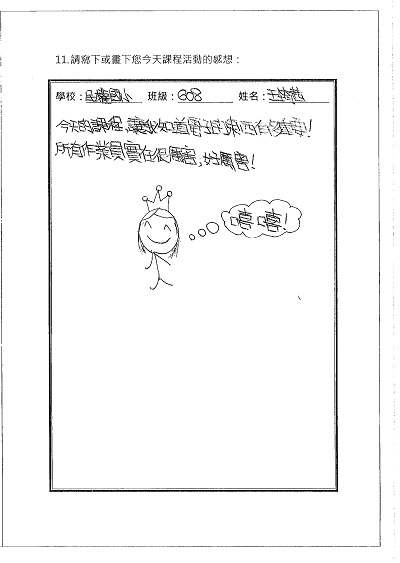 11.請寫下或畫下您今天課程活動的感想：
學校：國小 班級：608 姓名：王
今天的課程,讓我知道電子的東西有多重要!
所有作業員實在很厲害,好厲害!
嘻嘻!